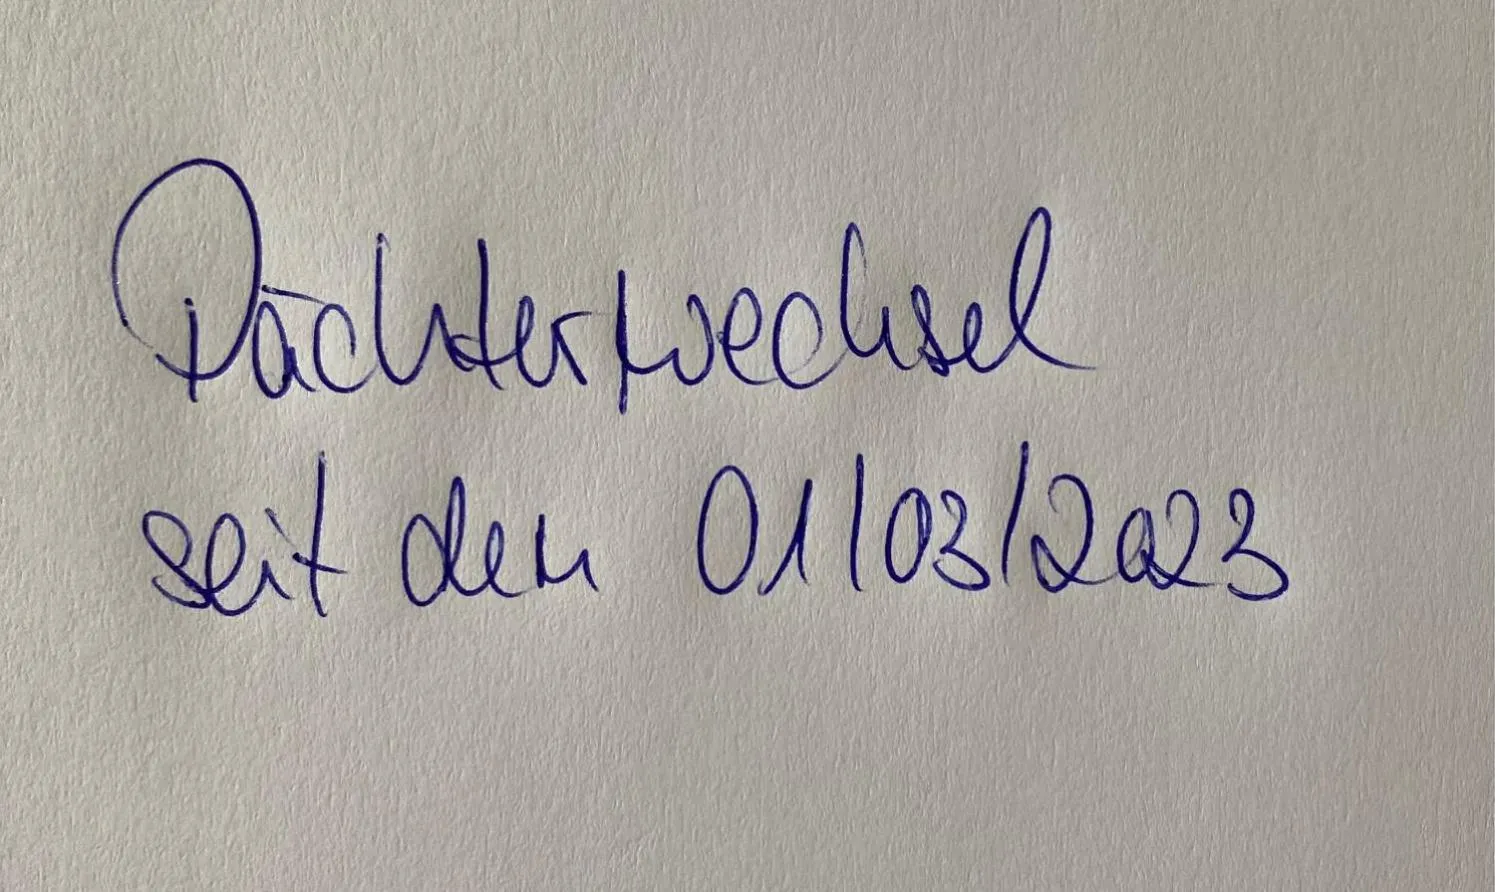 Pächterwechsel
seit den 01/03/2023